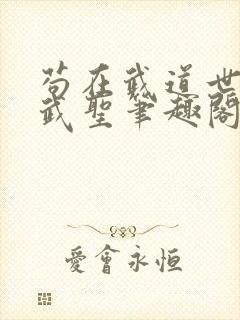 苟在武道世
武聖筆趣閣
愛會永恒